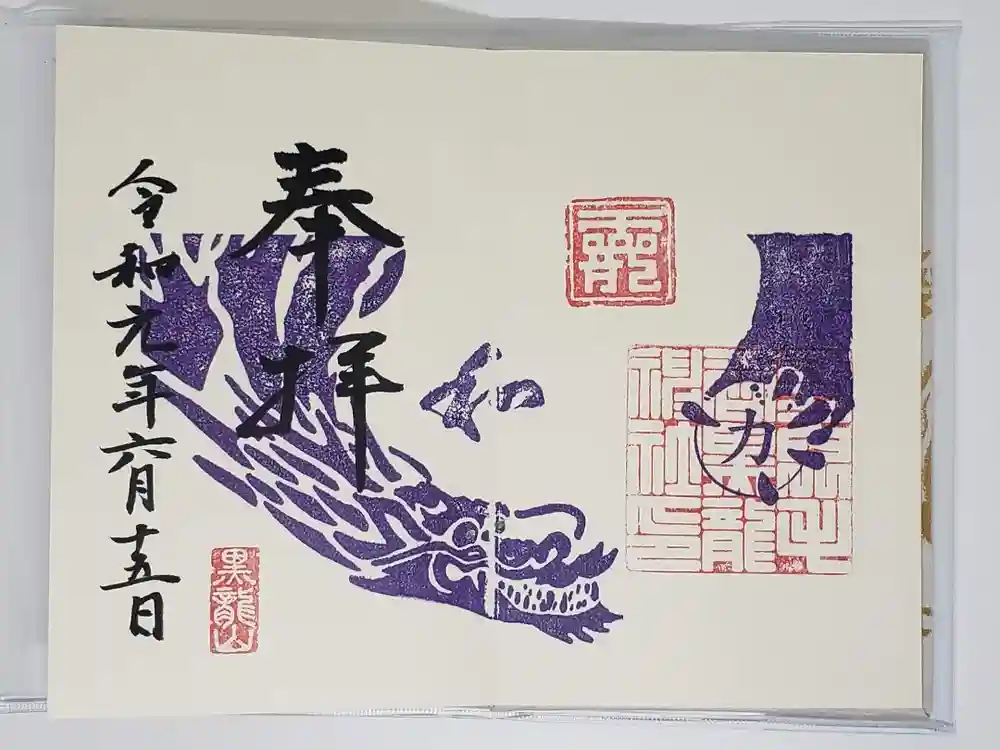 力
黒龍
神社印
和
奉拝
黒龍山
令和元年六月十五日